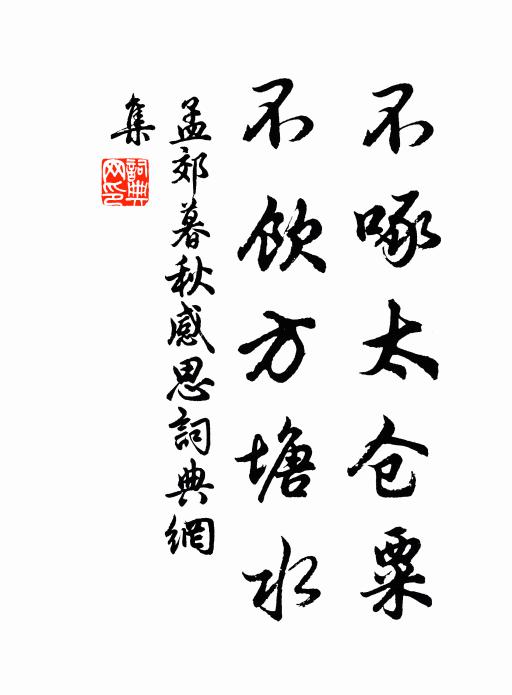 不啄太仓粟
不饮方塘水
孟郊暮秋感思詞典網
集
詞典
网印